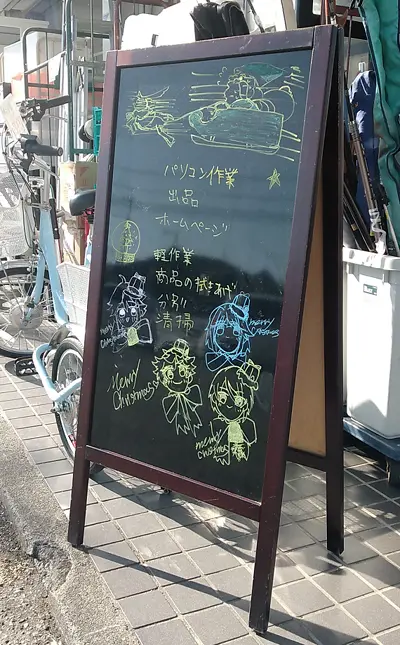 パソコン作業
出品
ホームページ
軽作業
商品の拭きあげ
分別
清掃
merry
christmas
merry
christmas
Merry
Christmas
merry
christmas